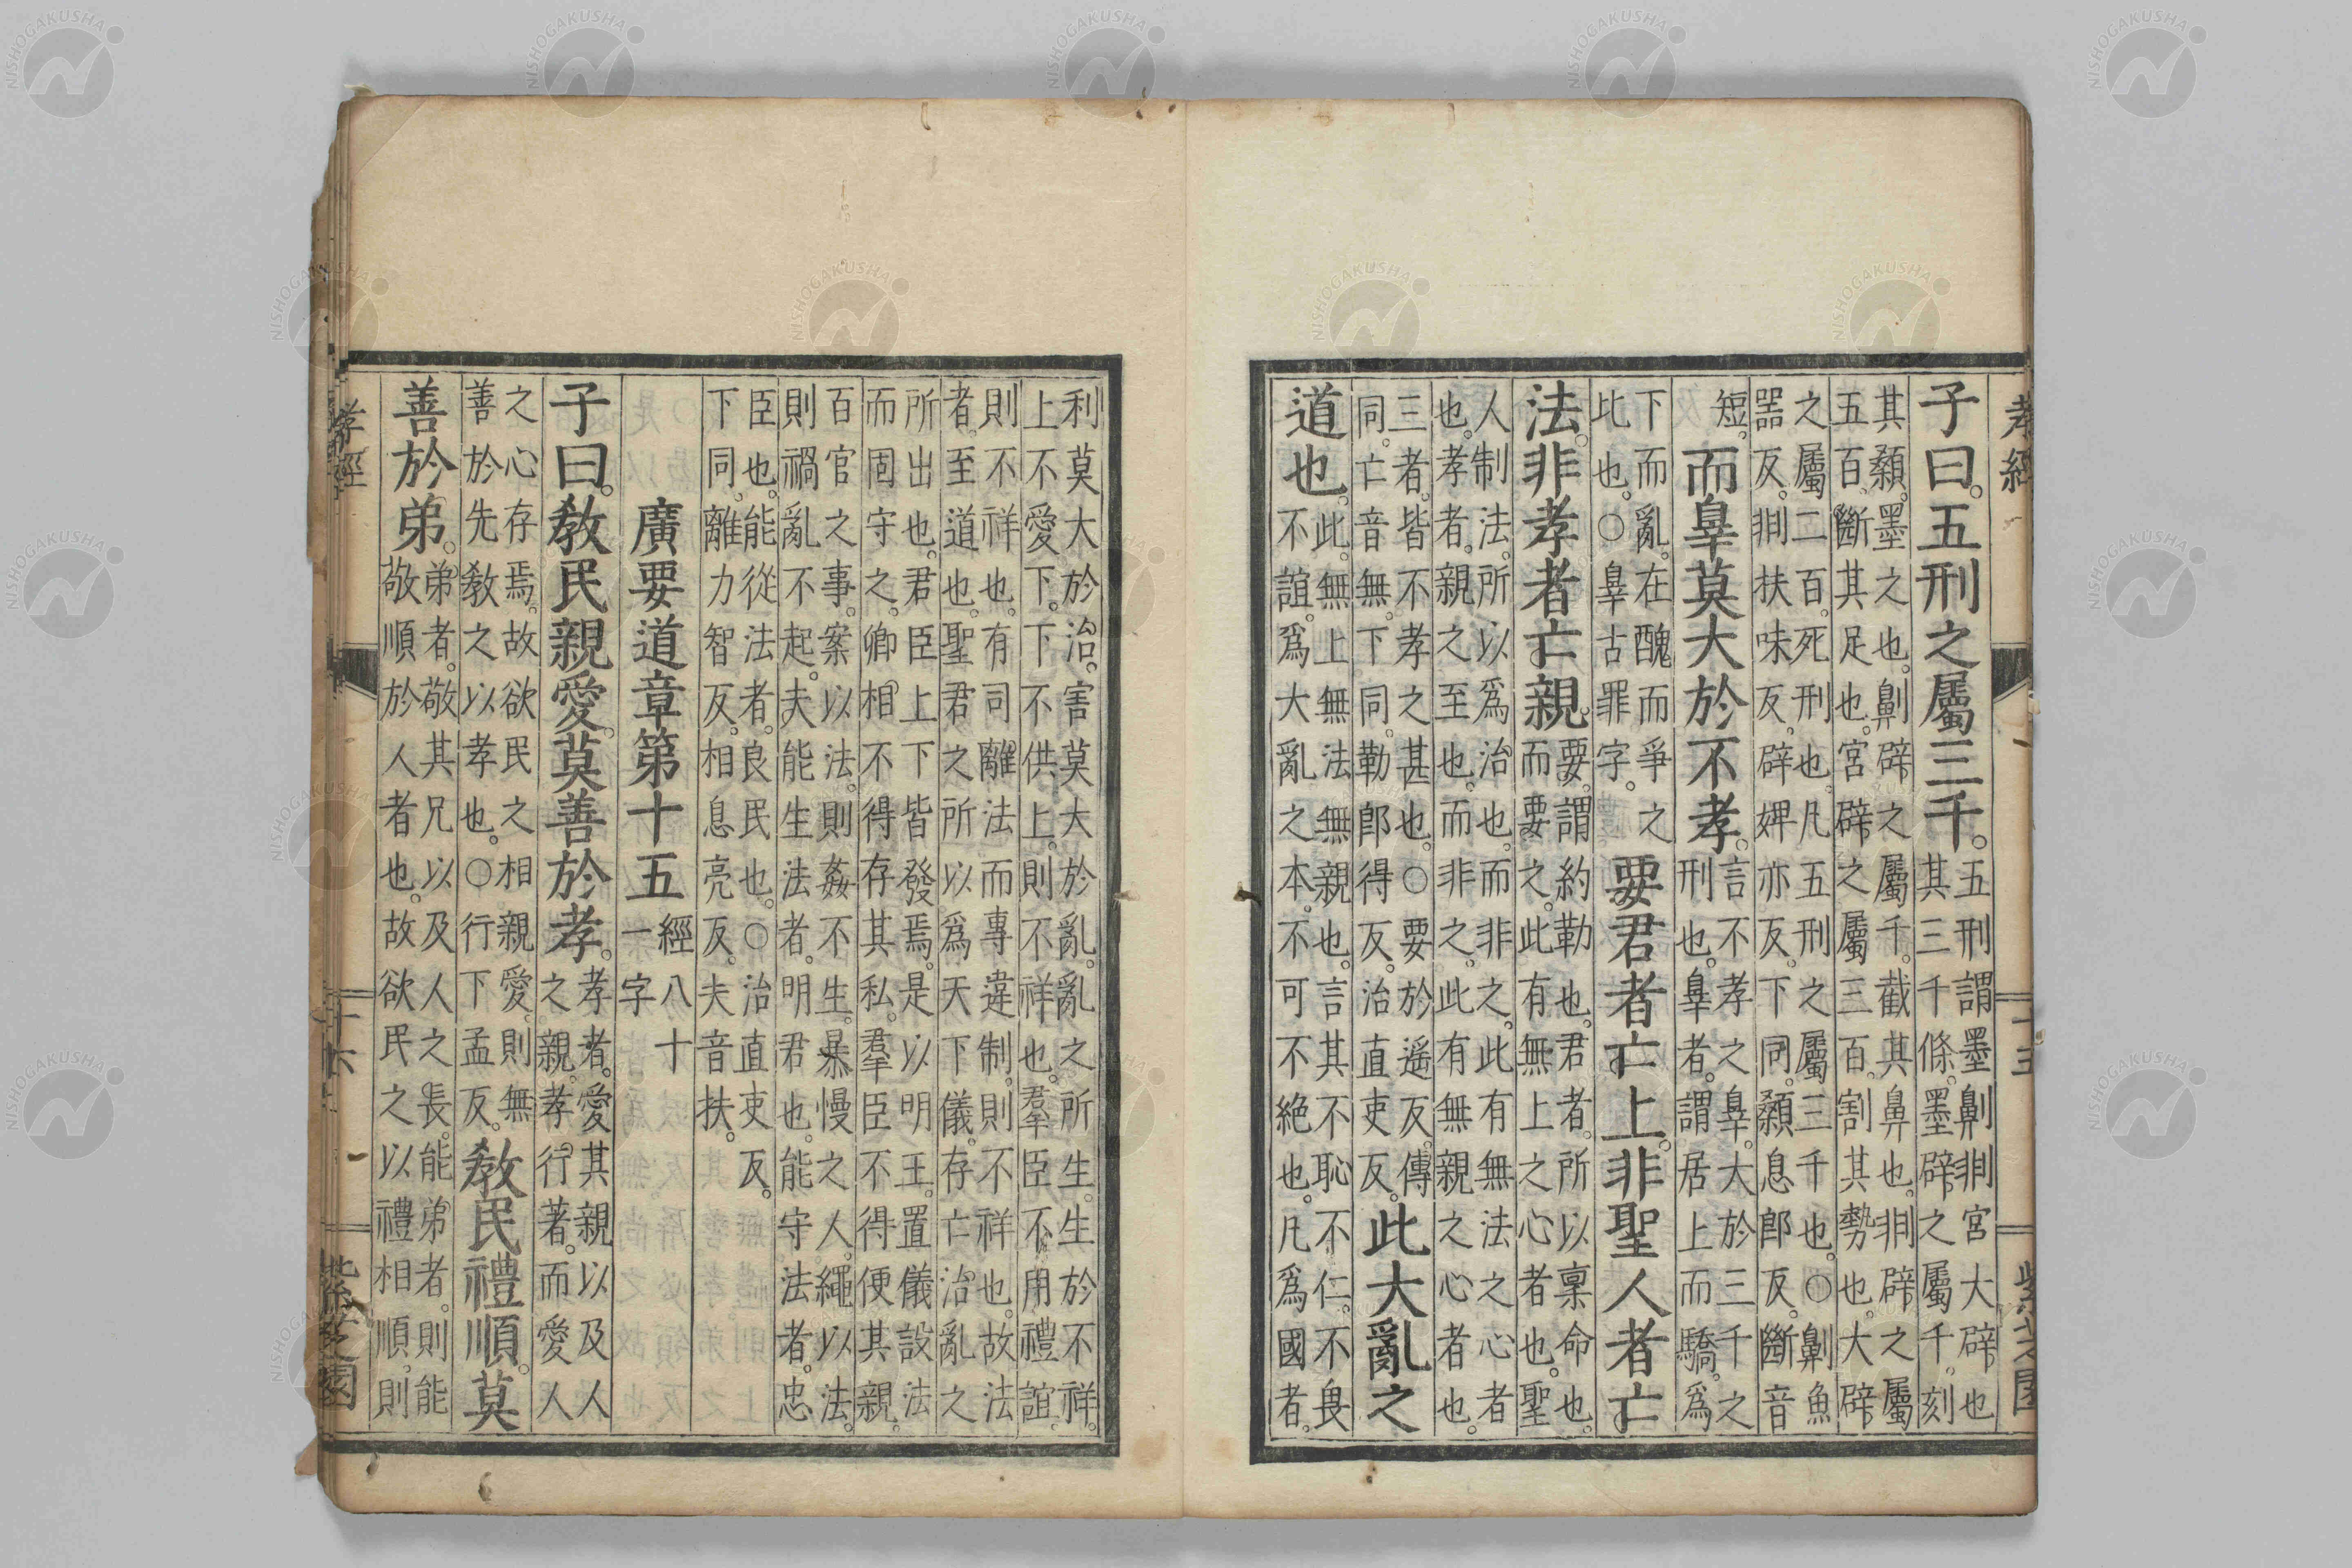 孝經
十五
紫芝園
子曰。五刑之屬三千。
五刑謂墨劓剕宮大辟也
其三千條。墨辟之屬千。刻
其顙。墨之也。劓辟之屬千。截其鼻也。剕辟之屬
五百。斷其足也。宮辟之屬三百。割其勢也。大辟
之屬二百。死刑也。凡五刑之屬三千也。○劓魚
器反。剕扶味反。辟婢亦反。下同。顙息郎反。斷音
短。
而辠莫大於不孝。
言不孝之辠。大於三千之
刑也。辠者。謂居上而驕。爲
下而亂。在醜而爭之
此也。○辠古罪字。
要君者亡上。非聖人者亡
法。非孝者亡親。
要。謂約勒也。君者。所以稟命也。
而要之。此有無上之心者也。聖
人制法。所以爲治也。而非之。此有無法之心者
也。孝者。親之至也。而非之。此有無親之心者也。
三者。皆不孝之甚也。○要於遙反。傳
同。亡音無。下同。勒郎得反。治直吏反。
此大亂之
道也。
此。無上無法無親也。言其不恥不仁。不畏
不誼。爲大亂之本。不可不絕也。凡爲國者。
利莫大於治。害莫大於亂。亂之所生。生於不祥。
上不愛下。下不供上。則不祥也。羣臣不用禮誼。
則不祥也。有司離法而專違制。則不祥也。故法
者。至道也。聖君之所以爲天下儀。存亡治亂之
所出也。君臣上下皆發焉。是以明王。置儀設法
而固守之。卿相不得存其私。羣臣不得便其親。
百官之事。案以法。則姦不生。暴慢之人。繩以法。
則禍亂不起。夫能生法者。明君也。能守法者。忠
臣也。能從法者。良民也。○治直吏反。
下同。離力智反。相息亮反。夫音扶。
廣要道章第十五
經八十
一字
子曰。敎民親愛。莫善於孝。
孝者。愛其親以及人
之親。孝行著。而愛人
之心存焉。故欲民之相親愛。則無
善於先敎之以孝也。○行下孟反。
敎民禮順。莫
善於弟。
弟者。敬其兄以及人之長。能弟者。則能
敬順於人者也。故欲民之以禮相順。則
孝經
十六
紫芝園